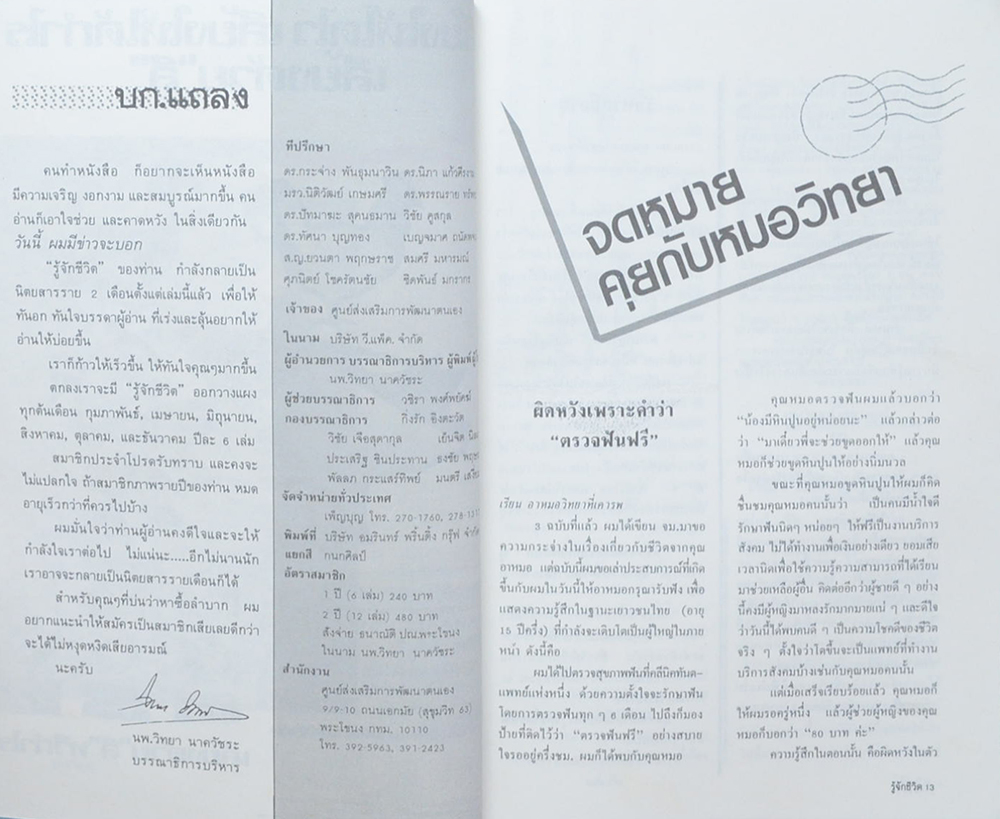 บก.แถลง
คนทำหนังสือ ก็อยากจะเห็นหนังสือ
มีความเจริญ งอกงาม และสมบูรณ์มากขึ้น คน
อ่านก็เอาใจช่วย และคาดหวัง ในสิ่งเดียวกัน
วันนี้ ผมมีข่าวจะบอก
“รู้จักชีวิต” ของท่าน กำลังกลายเป็น
นิตยสารราย 2 เดือนตั้งแต่เล่มนี้แล้ว เพื่อให้
ทันอก ทันใจบรรดาผู้อ่าน ที่เร่งและลุ้นอยากให้
อ่านให้บ่อยขึ้น
เราก็ก้าวให้เร็วขึ้น ให้ทันใจคุณๆมากขึ้น
ตกลงเราจะมี “รู้จักชีวิต” ออกวางแผง
ทุกต้นเดือน กุมภาพันธ์, เมษายน, มิถุนายน,
สิงหาคม, ตุลาคม, และธันวาคม ปีละ 6 เล่ม
สมาชิกประจำโปรดรับทราบ และคงจะ
ไม่แปลกใจ ถ้าสมาชิกภาพรายปีของท่าน หมด
อายุเร็วกว่าที่ควรไปบ้าง
ผมมั่นใจว่าท่านผู้อ่านคงดีใจและจะให้
กำลังใจเราต่อไป ไม่แน่นะ.....อีกไม่นานนัก
เราอาจจะกลายเป็นนิตยสารรายเดือนก็ได้
สำหรับคุณๆที่บ่นว่าหาซื้อลำบาก ผม
อยากแนะนำให้สมัครเป็นสมาชิกเสียเลยดีกว่า
จะได้ไม่หงุดหงิดเสียอารมณ์
นะครับ
นพ.วิทยา นาควัชระ
บรรณาธิการบริหาร
ที่ปรึกษา
ดร.กระจ่าง พันธุมนาวิน ดร.นิภา
มรว.นิติวัฒย์ เกษมศรี ดร.พรรณราย
ดร.ปัทมาฆะ สุคนธมาน วิชัย คูสกุล
ดร.ทัศนา บุญทอง เบญจมาศ
ส.ญ.ยวนดา พฤกษราช สมศรี มหารมณ์
ศุภนิตย์ โชครัตนชัย ชิดพันธ์
เจ้าของ ศูนย์ส่งเสริมการพัฒนาตนเอง
ในนาม บริษัท วี.แพ็ค. จำกัด
ผู้อำนวยการ บรรณาธิการบริหาร
นพ.วิทยา นาควัชระ
ผู้ช่วยบรรณาธิการ วชิรา พงศ์พยัคฆ์
กองบรรณาธิการ กิ่งรัก อิงคะวัต
วิชัย เจือสุดากุล เย็นจิต
ประเสริฐ ชินประทาน ธงชัย
พัลลภ กระแสร์ทิพย์ มนตรี
จัดจำหน่ายทั่วประเทศ
เพ็ญบุญ โทร. 270-1760,
พิมพ์ที่ บริษัท อมรินทร์ พริ้นติ้ง กรุ๊ฟ จำกัด
แยกสี กนกศิลป์
อัตราสมาชิก
1 ปี (6 เล่ม) 240 บาท
2 ปี (12 เล่ม) 480 บาท
สั่งจ่าย ธนาณัติ ปณ.พระโขนง
ในนาม นพ.วิทยา นาควัชระ
สำนักงาน
ศูนย์ส่งเสริมการพัฒนาตนเอง
9/9-10 ถนนเอกมัย (สุขุมวิท 63)
พระโขนง กทม. 10110
โทร. 392-5963, 391-2423
จดหมาย
คุยกับหมอวิทยา
ผิดหวังเพราะคำว่า
“ตรวจฟันฟรี”
เรียน อาหมอวิทยาที่เคารพ
3 ฉบับที่แล้ว ผมได้เขียน จม.มาขอ
ความกระจ่างในเรื่องเกี่ยวกับชีวิตจากคุณ
อาหมอ แต่ฉบับนี้ผมขอเล่าประสบการณ์ที่เกิด
ขึ้นกับผมในวันนี้ให้อาหมอกรุณารับฟัง เพื่อ
แสดงความรู้สึกในฐานะเยาวชนไทย (อายุ
15 ปีครึ่ง) ที่กำลังจะเติบโตเป็นผู้ใหญ่ในภาย
หน้า ดังนี้คือ
ผมได้ไปตรวจสุขภาพฟันที่คลินิคทันต-
แพทย์แห่งหนึ่ง ด้วยความตั้งใจจะรักษาฟัน
โดยการตรวจฟันทุก ๆ 6 เดือน ไปถึงก็มอง
ป้ายที่ติดไว้ว่า “ตรวจฟันฟรี” อย่างสบาย
ใจรออยู่ครึ่งชม. ผมก็ได้พบกับคุณหมอ
คุณหมอตรวจฟันผมแล้วบอกว่า
“น้องมีหินปูนอยู่หน่อยนะ” แล้วกล่าวต่อ
ว่า “มาเดี๋ยวพี่จะช่วยขูดออกให้” แล้วคุณ
หมอก็ช่วยขูดหินปูนให้อย่างนิ่มนวล
ขณะที่คุณหมอขูดหินปูนให้ผมก็คิด
ชื่นชมคุณหมอคนนั้นว่า เป็นคนมีน้ำใจดี
รักษาฟันนิดๆ หน่อยๆ ให้ฟรีเป็นงานบริการ
สังคม ไม่ได้ทำงานเพื่อเงินอย่างเดียว ยอมเสีย
เวลานิดเพื่อใช้ความรู้ความสามารถที่ได้เรียน
มาช่วยเหลือผู้อื่น คิดต่ออีกว่าผู้ชายดี ๆ อย่าง
นี้คงมีผู้หญิงมาหลงรักมากมายแน่ ๆ และดีใจ
ว่าวันนี้ได้พบคนดี ๆ เป็นความโชคดีของชีวิต
จริง ๆ ตั้งใจว่าโตขึ้นจะเป็นแพทย์ที่ทำงาน
บริการสังคมบ้างเช่นกับคุณหมอคนนั้น
แต่เมื่อเสร็จเรียบร้อยแล้ว คุณหมอก็
ให้ผมรอครู่หนึ่ง แล้วผู้ช่วยผู้หญิงของคุณ
หมอก็บอกว่า “80 บาท ค่ะ”
ความรู้สึกในตอนนั้น คือผิดหวังในตัว
รู้จักชีวิต 13